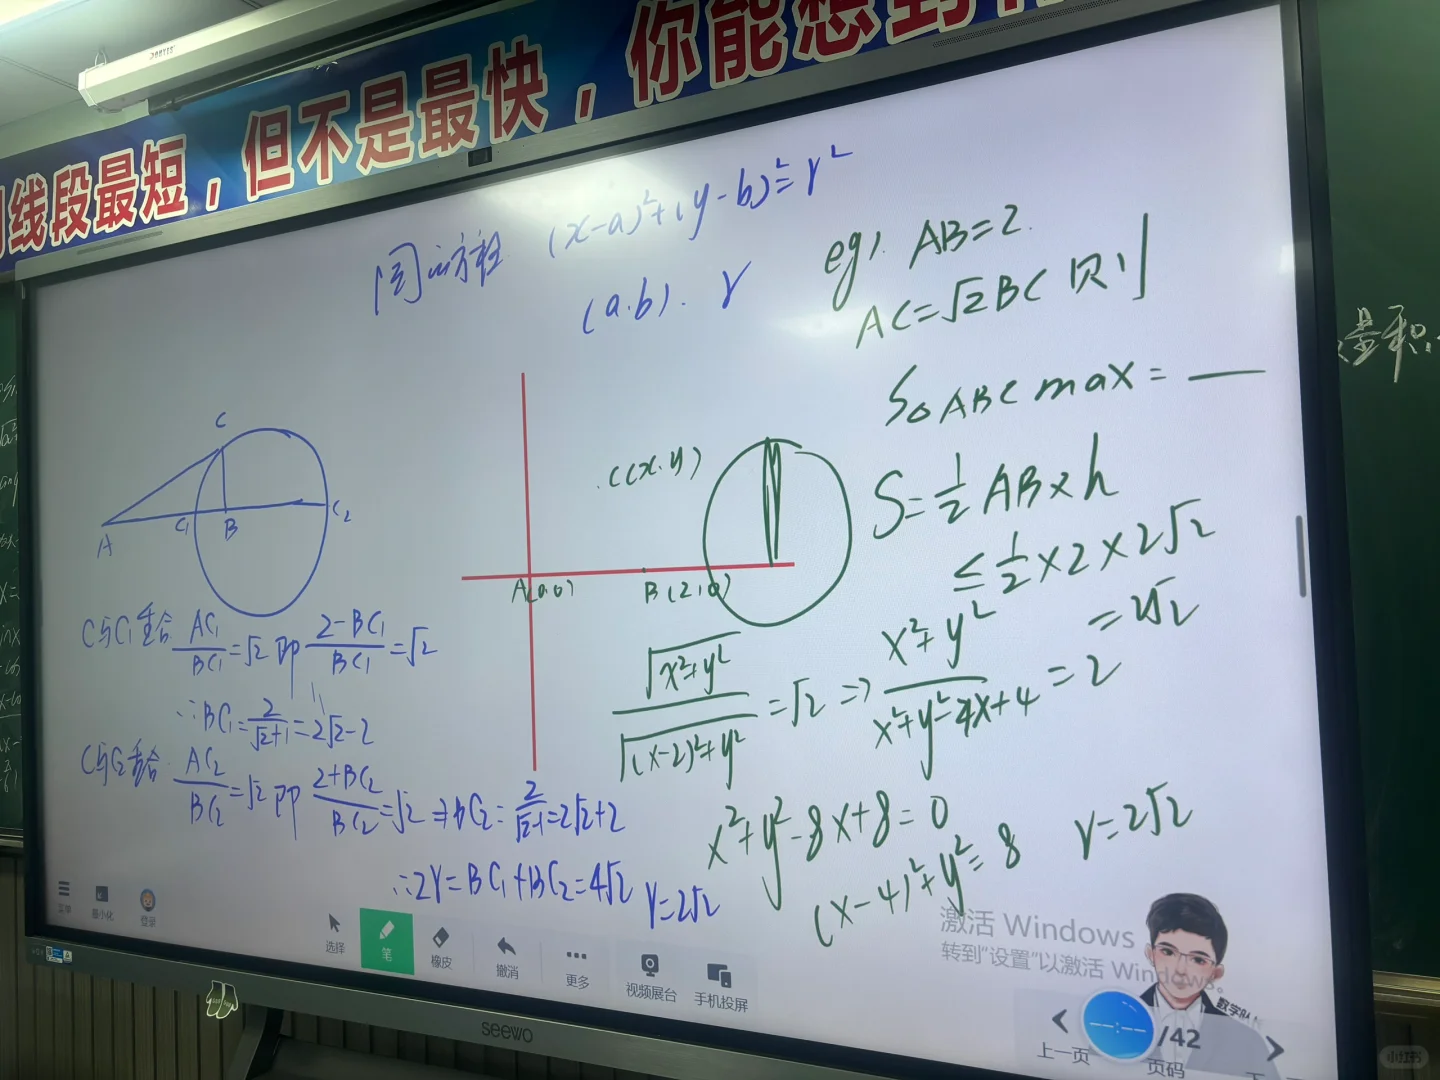 线段最短，但不是最快，你能想到
圆的方程 (x-a)²+(y-b)²=r²
(a.b). r
eg1. AB=2.
AC=√2BC 则
S△ABC max = ___
S=1/2 AB×h
≤1/2×2×2√2
=2√2
C
A C₁ B C₂
C(x.y)
A(0,0) B(2,0)
C与C₁重合 AC₁/BC₁=√2 即 (2-BC₁)/BC₁=√2
∴BC₁=2/(√2+1)=2√2-2
C与C₂重合 AC₂/BC₂=√2 即 (2+BC₂)/BC₂=√2 ⇒BC₂=2/(√2-1)=2√2+2
∴2r=BC₁+BC₂=4√2 r=2√2
√(x²+y²)/√((x-2)²+y²)=√2 ⇒ (x²+y²)/(x²+y²-4x+4)=2
x²+y²-8x+8=0
(x-4)²+y²=8 r=2√2
是积
菜单 最小化 登录
选择 笔 橡皮 撤消 更多 视频展台 手机投屏
激活 Windows
转到"设置"以激活 Windows。
上一页 /42 页码 下
seewo
小红书